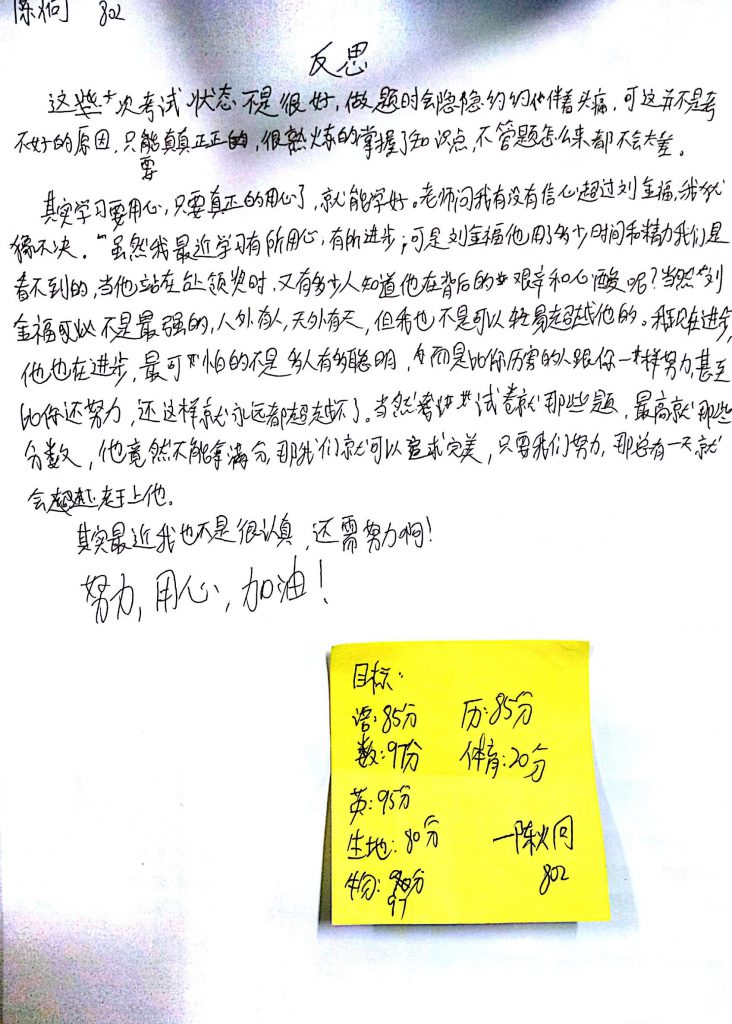 陈炯 802
反思
这些次考试状态不是很好,做题时会隐隐约约地伴着头痛,可这并不是考
不好的原因,只要能真真正正的,很熟炼的掌握了知识点,不管题怎么来都不会太差。
其实学习要用心,只要真正的用心了,就能学好。老师问我有没有信心超过刘金福,我犹
豫不决。"虽然我最近学习有所用心,有所进步;可是刘金福他用了多少时间和精力我们是
看不到的,当他站在台领奖时,又有多少人知道他在背后的艰辛和心酸呢?当然刘
金福可以不是最强的,人外有人,天外有天,但我也不是可以轻易超越他的。我现在进步,
他也在进步,最可怕的不是别人有多聪明,而是比你厉害的人跟你一样努力,甚至
比你还努力,还这样就永远都超越不了。当然考试试卷就那些题,最高就那些
分数,他竟然不能拿满分,那我们就可以追求完美,只要我们努力,那总有一天就
会赶上他。
其实最近我也不是很认真,还需努力啊!
努力,用心,加油!
目标:
语:85分 历:85分
数:97分 体育:20分
英:95分
生地:80分 —陈炯
物:97分 802